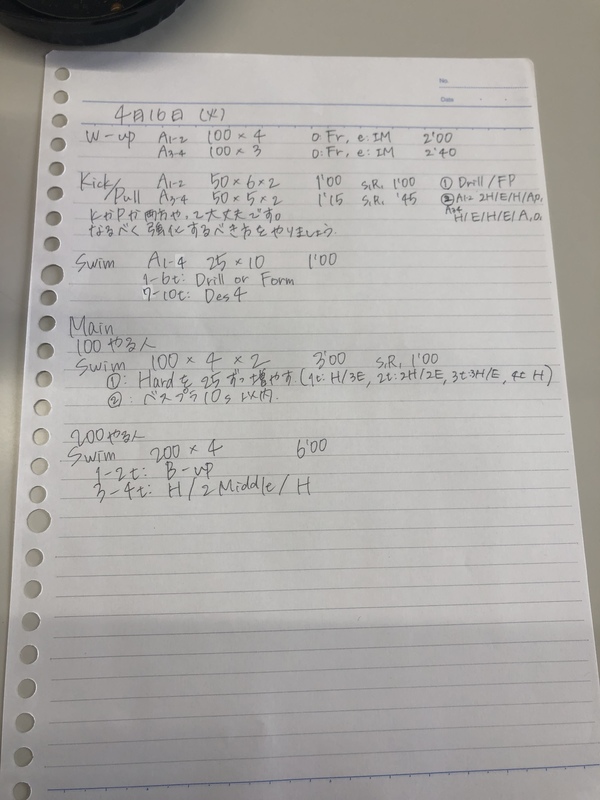 No.
Date
4月16日 (火)
W-up A1-2 100×4 o:Fr, e:IM 2'00
A3-4 100×3 o:Fr, e:IM 2'40
Kick/ A1-2 50×6×2 1'00 S.R. 1'00 ① Drill/FP
Pull A3-4 50×5×2 1'15 S.R. '45 ② A1-2 2H/E/H/A.O.
A3-4 H/E/H/E/A.O.
KかPか両方やって大丈夫です。
なるべく強化するべき方をやりましょう。
Swim A1-4 25×10 1'00
1-6t: Drill or Form
7-10t: Des4
Main
100やる人
Swim 100×4×2 3'00 S.R. 1'00
①: Hardを25ずつ増やす (1t: H/3E, 2t: 2H/2E, 3t: 3H/E, 4t H)
②: ベスプラ10s以内.
200やる人
Swim 200×4 6'00
1-2t: B-up
3-4t: H/2 Middle/H